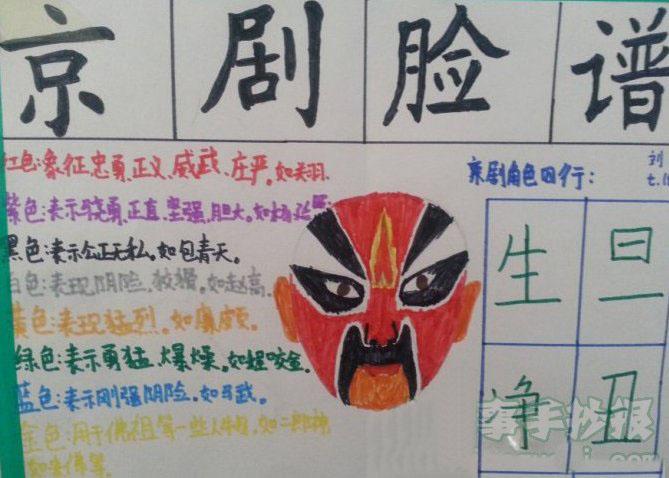 京剧脸谱
红色:象征忠勇、正义、威武、庄严。如关羽.
紫色:表示骁勇、正直、坚强、胆大。如
黑色:表示公正无私。如包青天。
白色:表现阴险、狡猾。如赵高.
黄色:表现猛烈。如廉颇。
绿色:表示勇猛、爆燥。如程咬金。
蓝色:表示刚强阴险。如
金色:用于佛祖等一些人物。如二郎神
如来佛等.
京剧角色四行:
刘
七.
生 旦
净 丑
手抄报